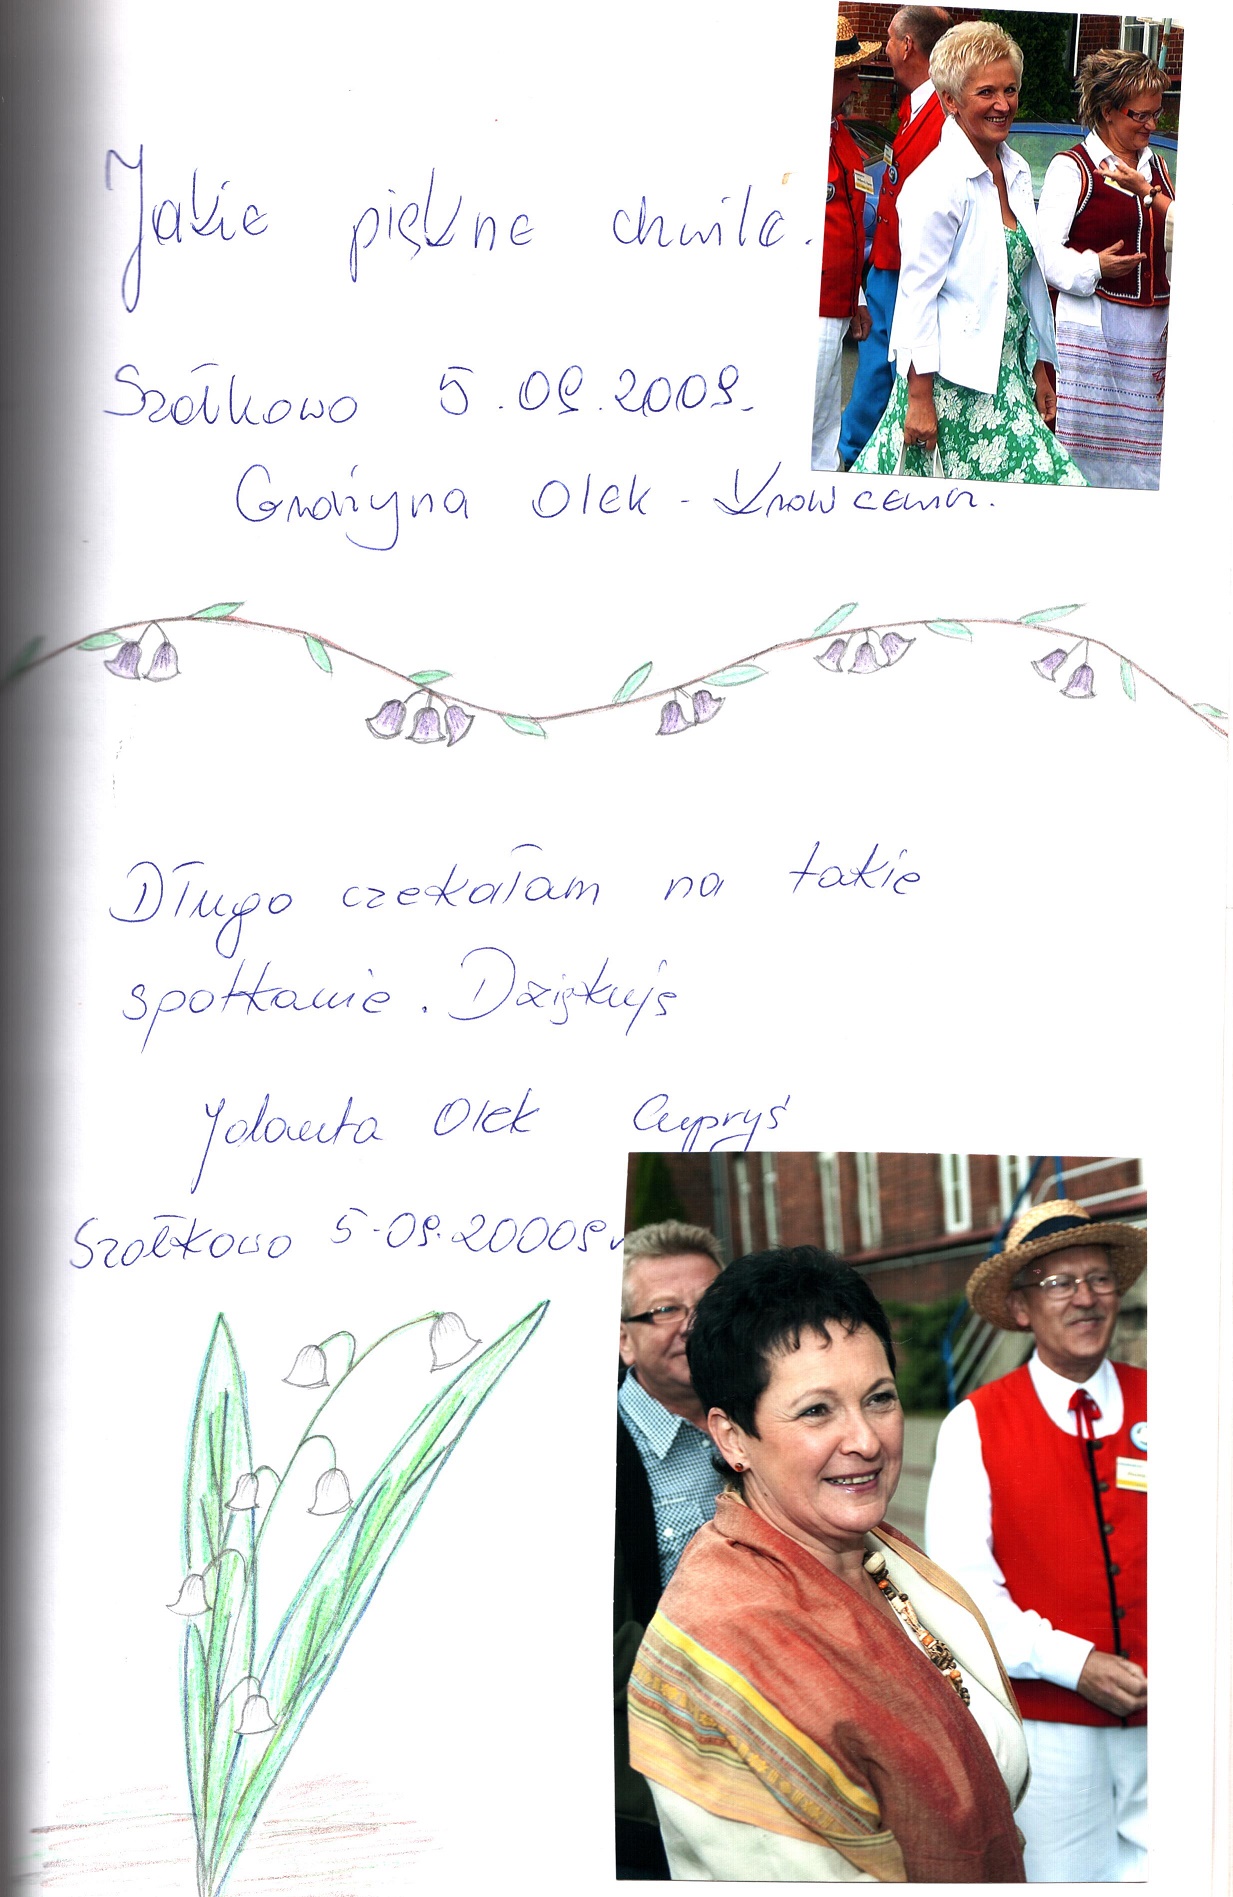 Jakie piękne chwile.
Szółkowo 5.09.2009.
Grażyna Olek -
Długo czekałam na takie
spotkanie. Dziękuję
Jolanta Olek Cupryś
Szołkowo 5-09.20009r